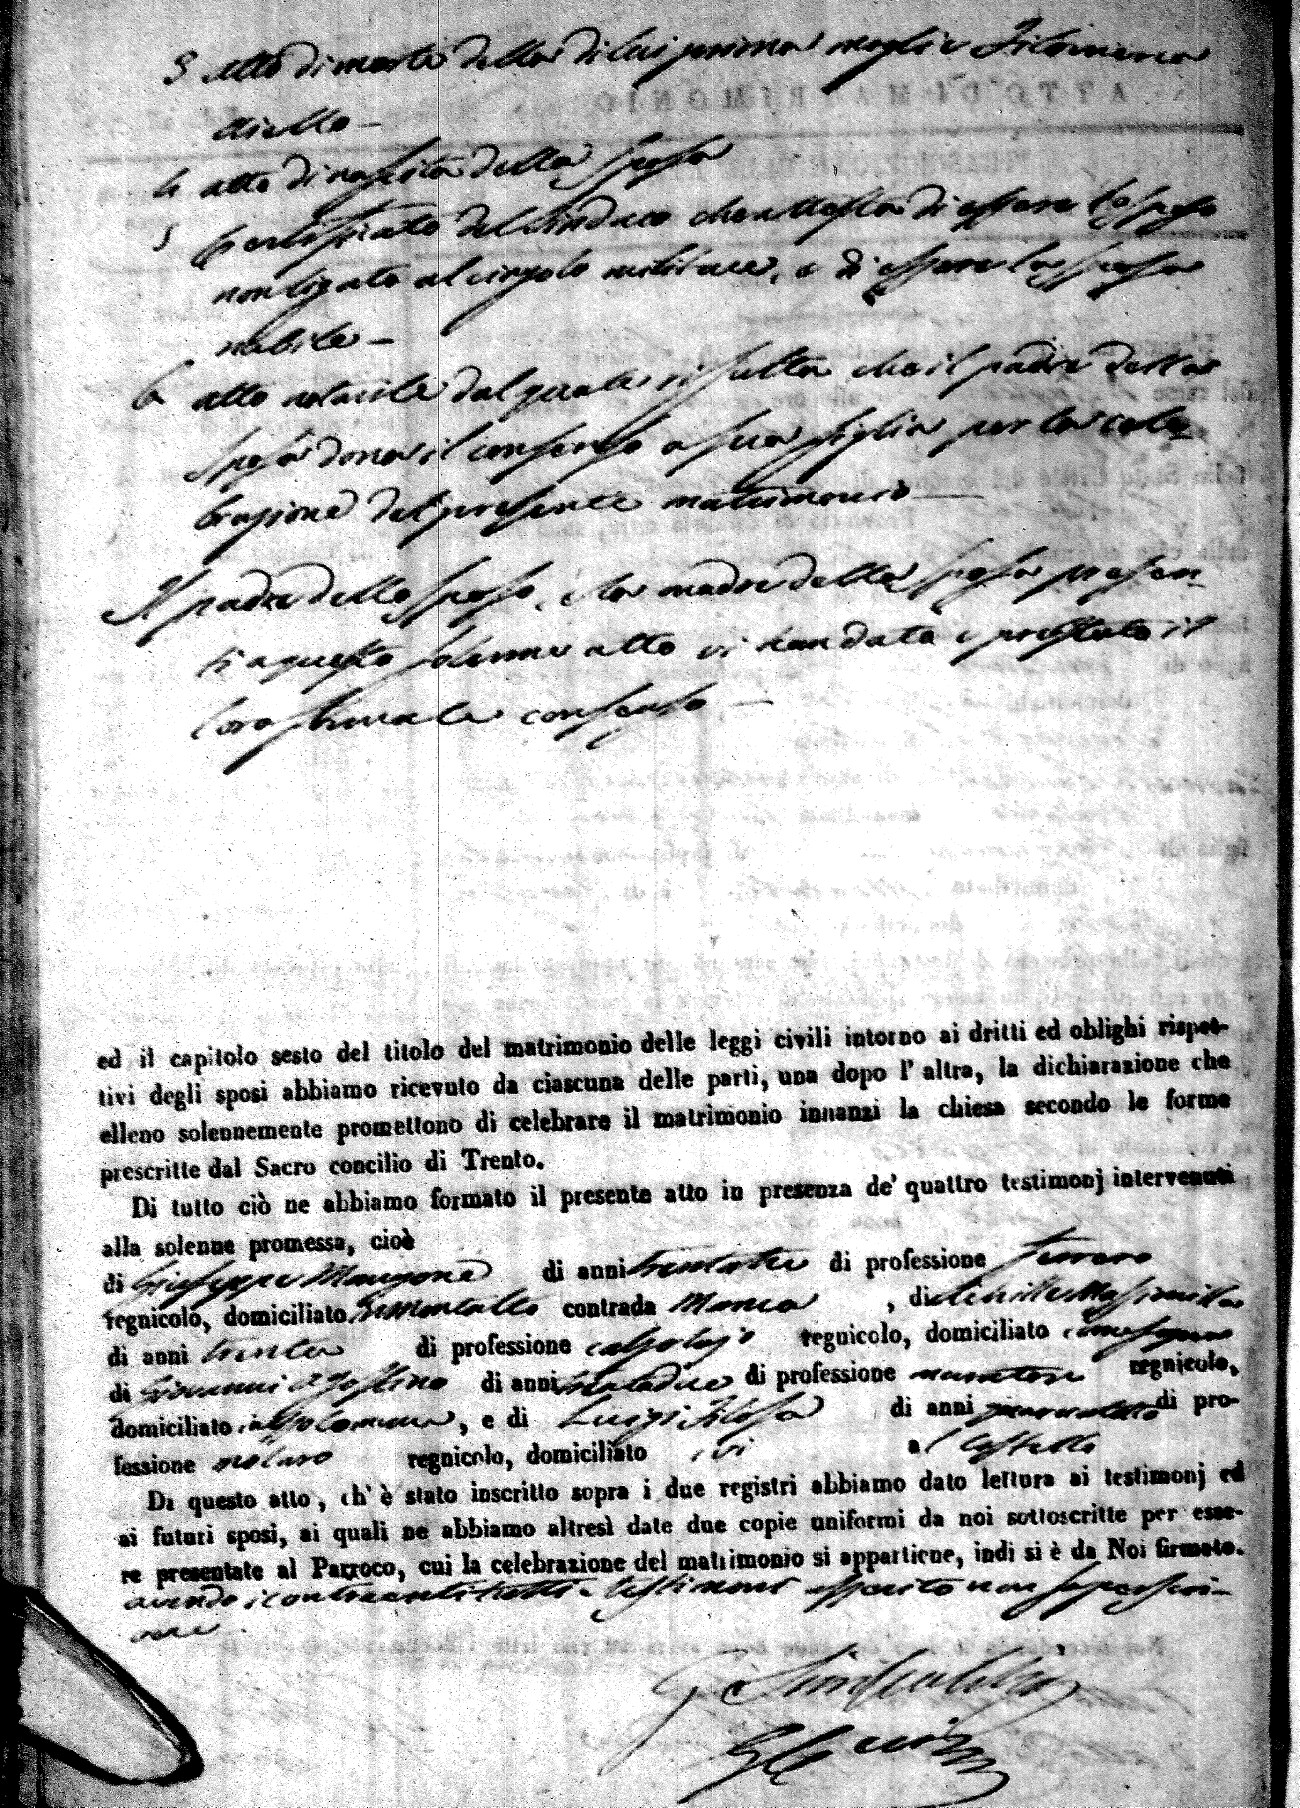 3 atto di morte della di lui prima moglie Filomena
Aiello —
4 atto di nascita della sposa
5 Certificato del Sindaco che attesta di essere lo sposo
non ligato al cingolo militare, e di essere la sposa
nubile —
6 atto notarile dal quale risulta che il padre della
sposa dona il consenso a sua figlia per la cele-
brazione del presente matrimonio —
Il padre dello sposo, e la madre della sposa presen-
ti a questo solenne atto vi han dato e prestato il
loro formale consenso —
ed il capitolo sesto del titolo del matrimonio delle leggi civili intorno ai dritti ed oblighi rispet-
tivi degli sposi abbiamo ricevuto da ciascuna delle parti, una dopo l' altra, la dichiarazione che
elleno solennemente promettono di celebrare il matrimonio innanzi la chiesa secondo le forme
prescritte dal Sacro concilio di Trento.
Di tutto ciò ne abbiamo formato il presente atto in presenza de' quattro testimonj intervenuti
alla solenne promessa, cioè
di Giuseppe Mangone di anni trentatre di professione ferraro
regnicolo, domiciliato contrada Manca , di Achille Massimilla
di anni trenta di professione calzolajo regnicolo, domiciliato
di Giovanni Agostino di anni di professione muratore regnicolo,
domiciliato , e di Luigi Filosa di anni di pro-
fessione regnicolo, domiciliato ivi al Castello
Di questo atto, ch' è stato inscritto sopra i due registri abbiamo dato lettura ai testimonj ed
ai futuri sposi, ai quali ne abbiamo altresì date due copie uniformi da noi sottoscritte per esse-
re presentate al Parroco, cui la celebrazione del matrimonio si appartiene, indi si è da Noi firmato.
avendo i contraenti e testimoni asserito non saper scri-
vere